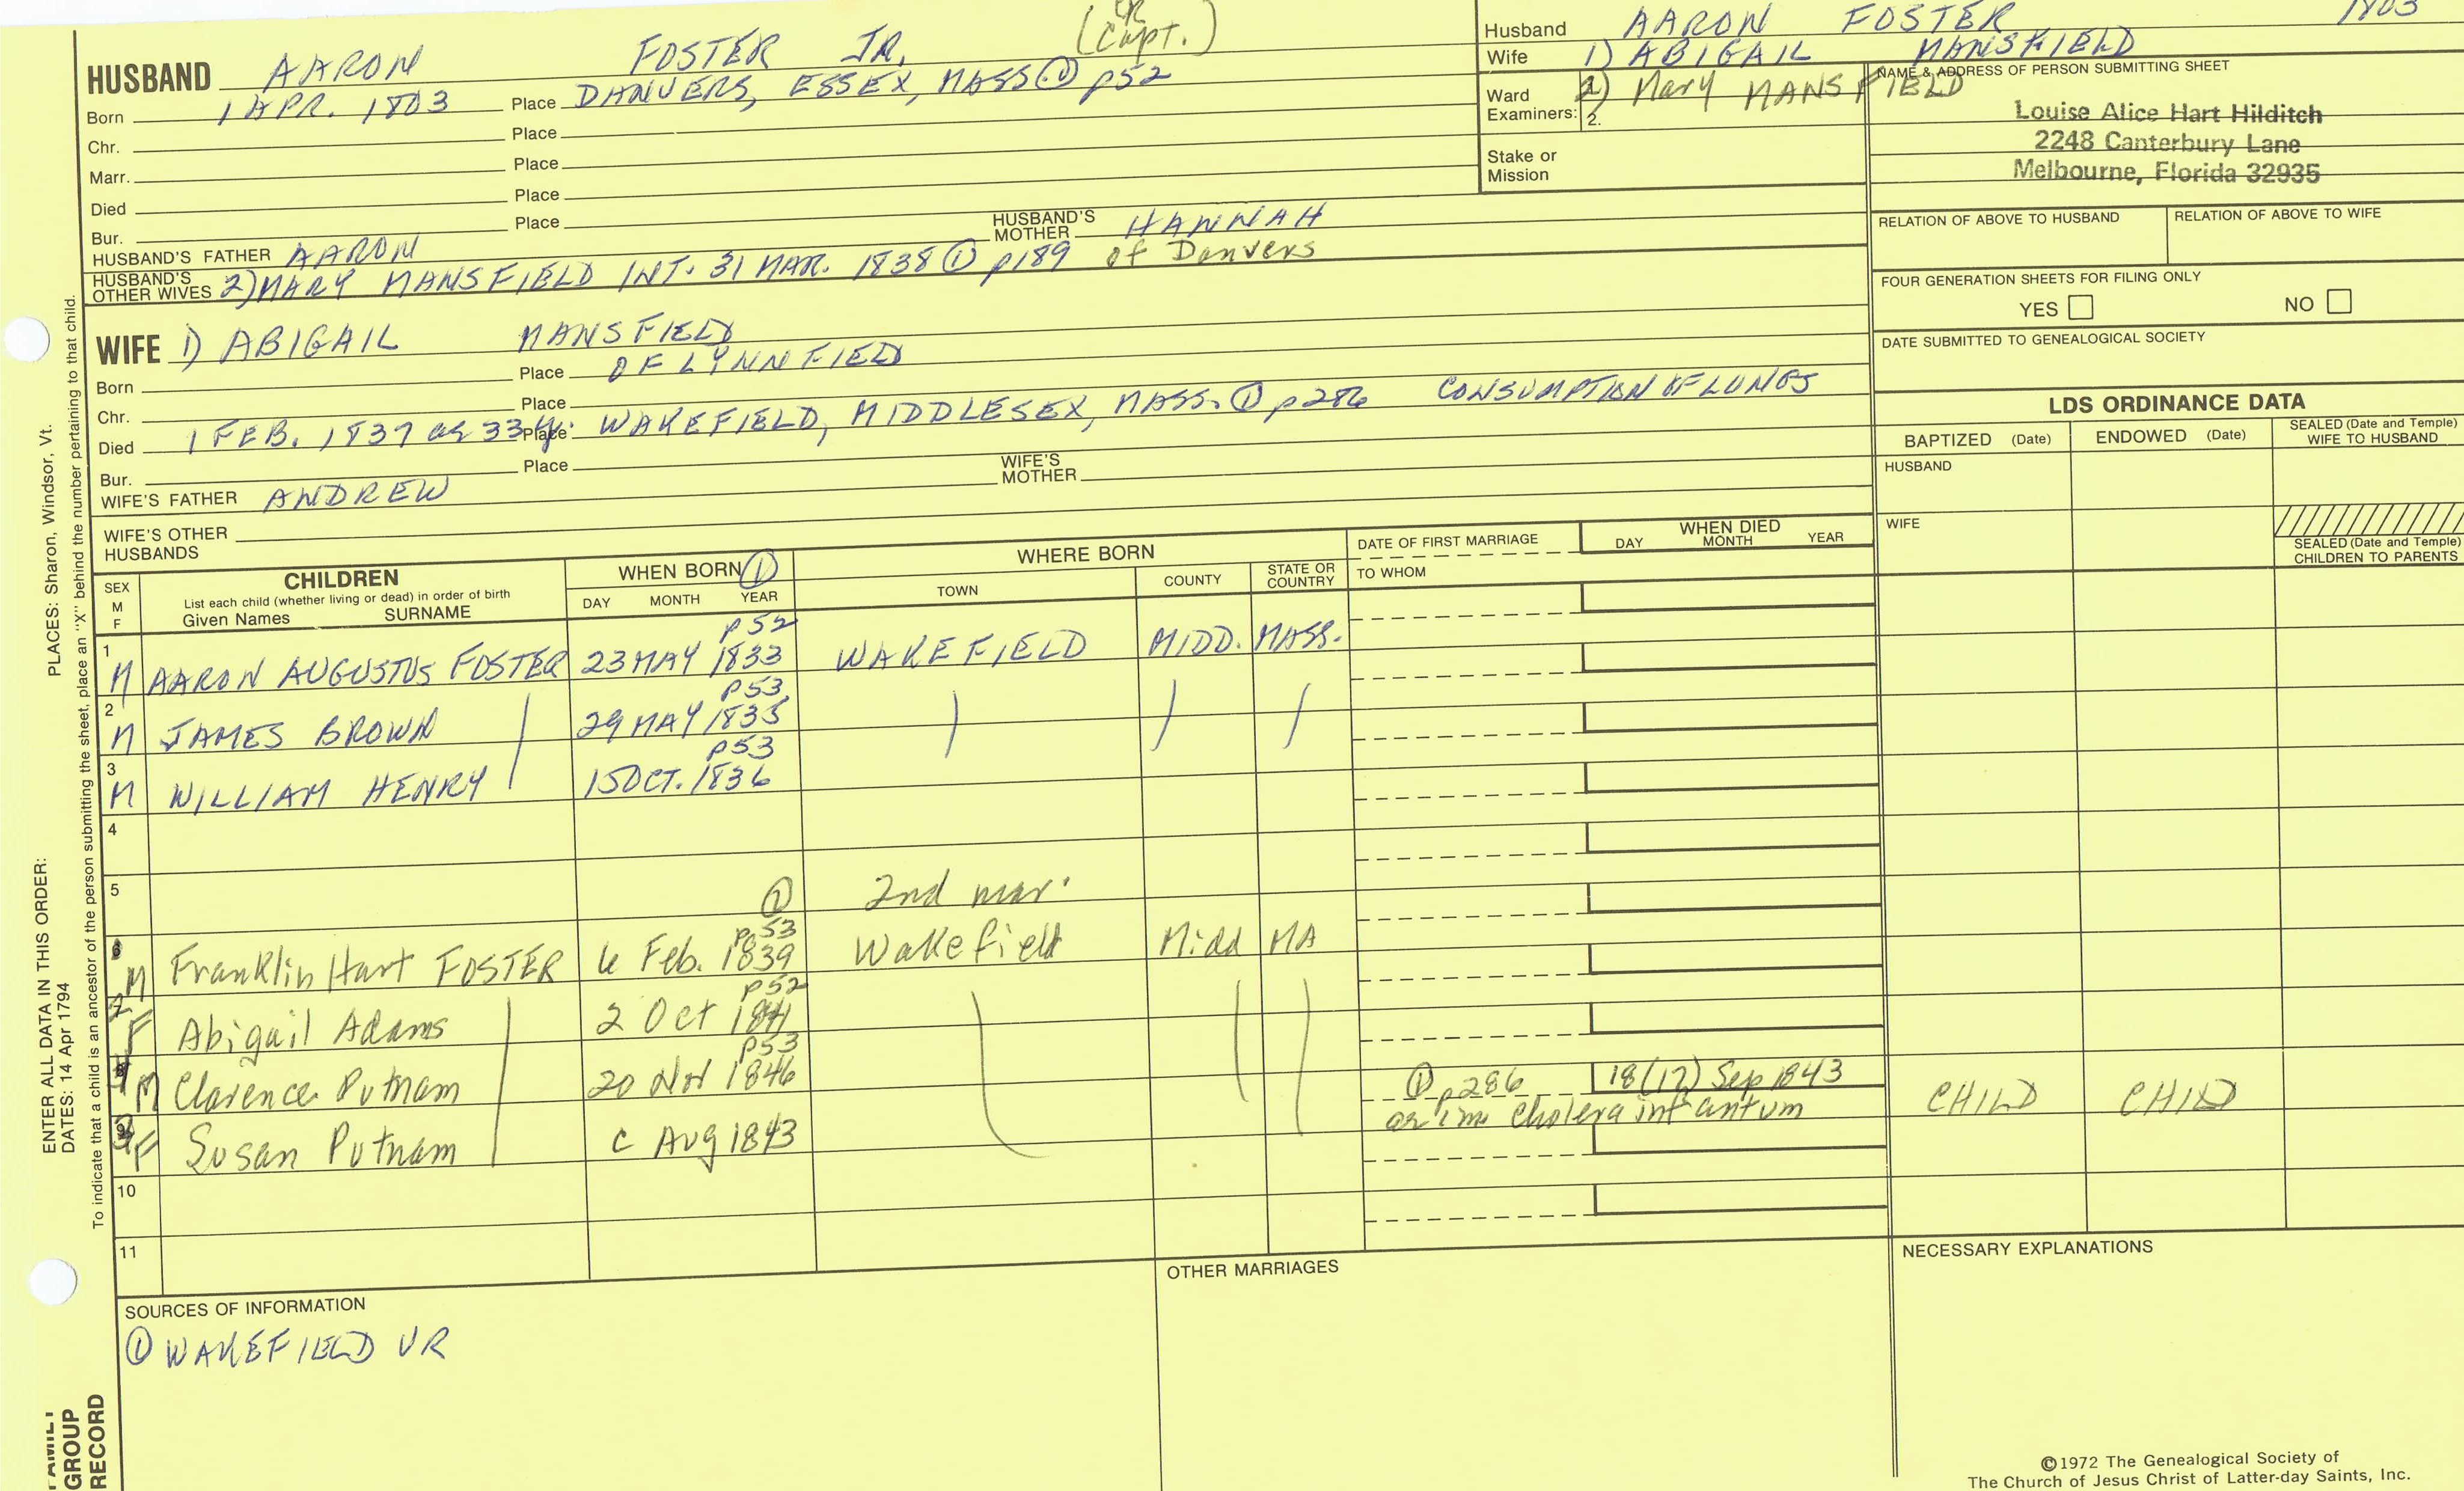 CR
(Capt.)
HUSBAND AARON FOSTER JR.
Born 1 APR. 1803 Place DANVERS, ESSEX, MASS ① p52
Chr. Place
Marr. Place
Died Place
Bur. Place
HUSBAND'S FATHER AARON HUSBAND'S MOTHER HANNAH
HUSBAND'S OTHER WIVES 2) MARY MANSFIELD INT. 31 MAR. 1838 ① p189 of Danvers
WIFE 1) ABIGAIL MANSFIELD
Born Place OF LYNNFIELD
Chr. Place
Died 1 FEB. 1837 ae 33 y. Place WAKEFIELD, MIDDLESEX, MASS. ① p286 CONSUMPTION OF LUNGS
Bur. Place
WIFE'S FATHER ANDREW WIFE'S MOTHER
WIFE'S OTHER HUSBANDS
Husband AARON FOSTER 1803
Wife 1) ABIGAIL MANSFIELD
2) Mary MANSFIELD
Ward Examiners: 1. 2.
Stake or Mission
NAME & ADDRESS OF PERSON SUBMITTING SHEET
Louise Alice Hart Hilditch
2248 Canterbury Lane
Melbourne, Florida 32935
RELATION OF ABOVE TO HUSBAND RELATION OF ABOVE TO WIFE
FOUR GENERATION SHEETS FOR FILING ONLY
YES NO
DATE SUBMITTED TO GENEALOGICAL SOCIETY
LDS ORDINANCE DATA
BAPTIZED (Date) ENDOWED (Date) SEALED (Date and Temple) WIFE TO HUSBAND
HUSBAND
WIFE
SEALED (Date and Temple) CHILDREN TO PARENTS
SEX M F
CHILDREN
List each child (whether living or dead) in order of birth
Given Names SURNAME
WHEN BORN ①
DAY MONTH YEAR
WHERE BORN
TOWN COUNTY STATE OR COUNTRY
DATE OF FIRST MARRIAGE
TO WHOM
WHEN DIED
DAY MONTH YEAR
p52
1 M AARON AUGUSTUS FOSTER 23 MAY 1833 WAKEFIELD MIDD. MASS.
p53
2 M JAMES BROWN 29 MAY 1835
p53
3 M WILLIAM HENRY 15 OCT. 1836
4
5
① 2nd mar.
p53
6 M Franklin Hart FOSTER 6 Feb. 1839 Wakefield Midd MA
p52
F Abigail Adams 2 Oct 1841
p53
M Clarence Putnam 20 Nov 1846
① p286 18(17) Sep 1843
F Susan Putnam c Aug 1843 ae 1m cholera infantum CHILD CHILD
10
11
SOURCES OF INFORMATION
① WAKEFIELD VR
OTHER MARRIAGES
NECESSARY EXPLANATIONS
©1972 The Genealogical Society of
The Church of Jesus Christ of Latter-day Saints, Inc.
ENTER ALL DATA IN THIS ORDER:
DATES: 14 Apr 1794
PLACES: Sharon, Windsor, Vt.
To indicate that a child is an ancestor of the person submitting the sheet, place an "X" behind the number pertaining to that child.
FAMILY
GROUP
RECORD